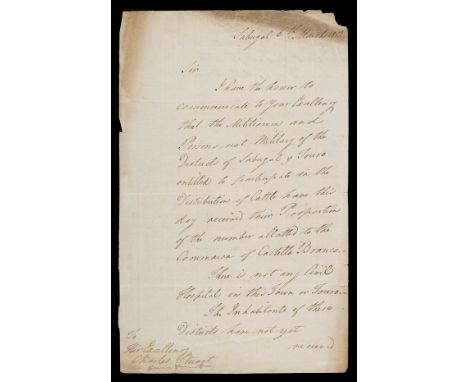 Sabugal 6th March 1812
Sir
I have the honor to
communicate to Your Excellency
that the Militiamen and
Persons not Military of the
Districts of Sabugal & Touro
entitled to Participate in the
Distribution of Cattle have this
day received their Proportion
of the number allotted to the
Commarca of Castello Branco.
There is not any Civil
Hospital in this Town or Touro.
The Inhabitants of these
Districts have not yet
received
To
His Excellency
Charles Stuart